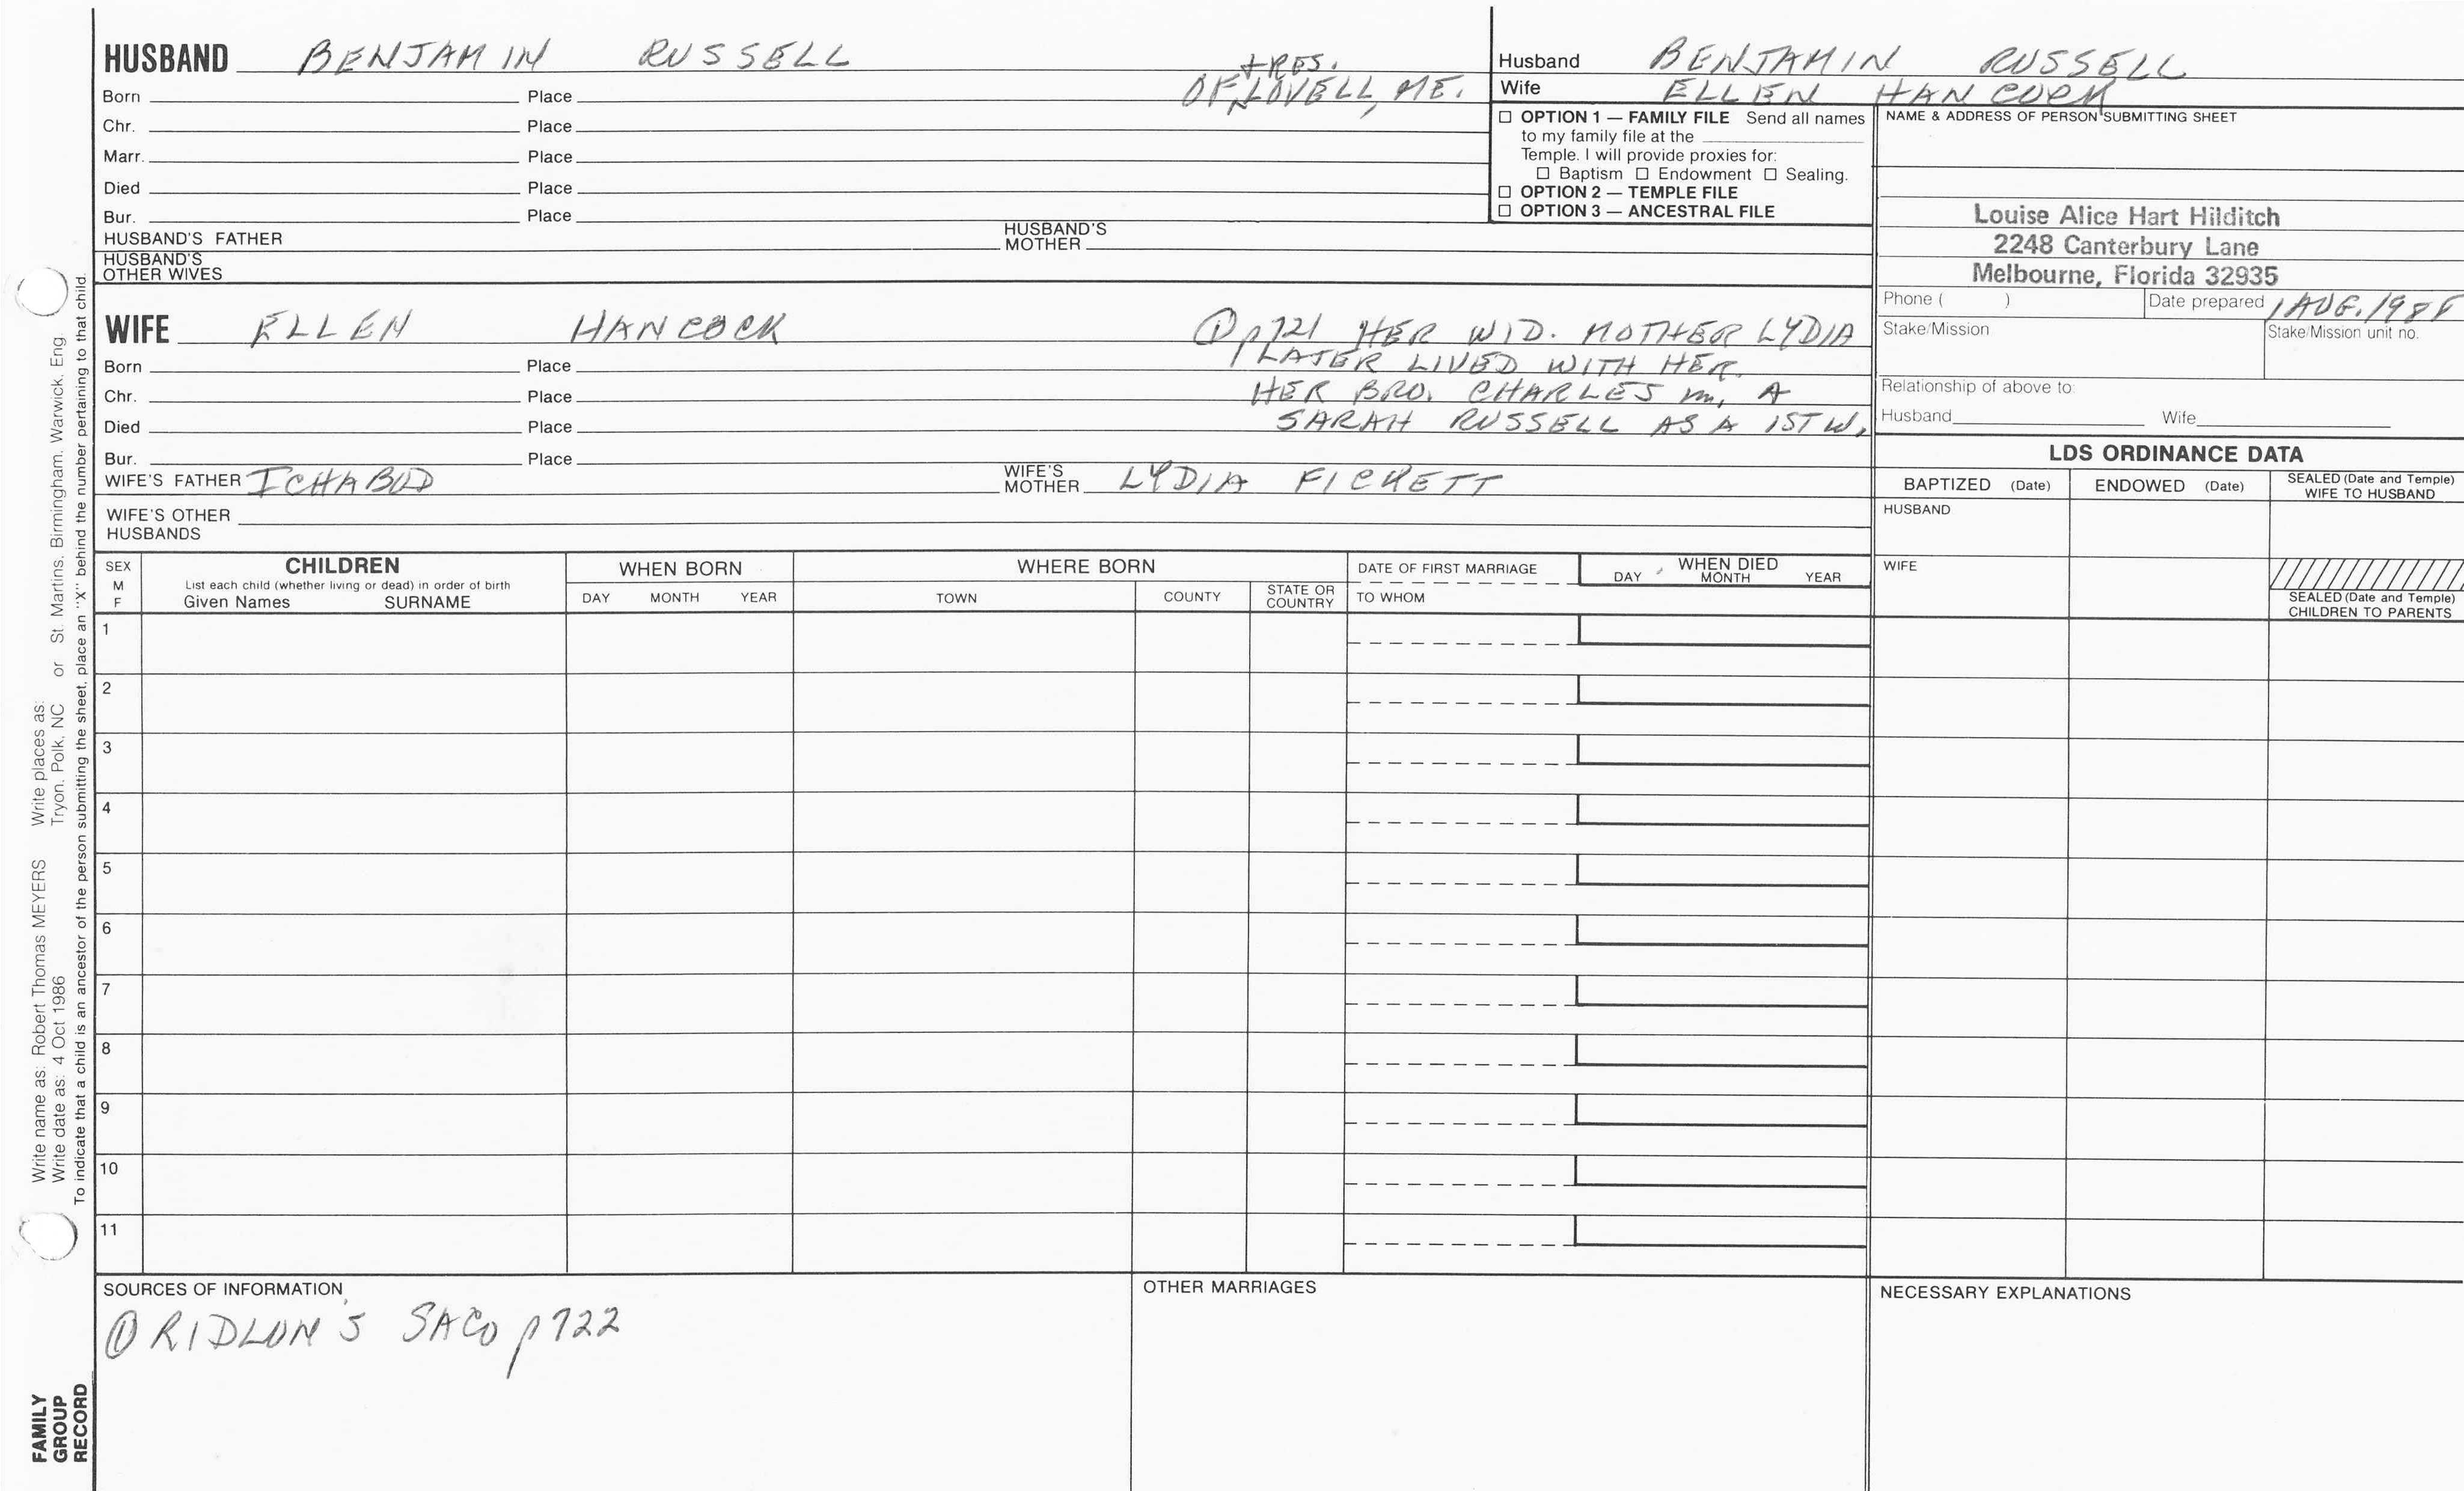 HUSBAND BENJAMIN RUSSELL
+ RES.
OF LOVELL, ME.
Born Place
Chr. Place
Marr. Place
Died Place
Bur. Place
HUSBAND'S FATHER HUSBAND'S MOTHER
HUSBAND'S OTHER WIVES
Husband BENJAMIN RUSSELL
Wife ELLEN HANCOCK
☐ OPTION 1 — FAMILY FILE Send all names
to my family file at the
Temple. I will provide proxies for:
☐ Baptism ☐ Endowment ☐ Sealing.
☐ OPTION 2 — TEMPLE FILE
☐ OPTION 3 — ANCESTRAL FILE
NAME & ADDRESS OF PERSON SUBMITTING SHEET
Louise Alice Hart Hilditch
2248 Canterbury Lane
Melbourne, Florida 32935
Phone ( ) Date prepared 1 AUG. 1988
Stake/Mission Stake/Mission unit no.
Relationship of above to:
Husband Wife
WIFE ELLEN HANCOCK
① p 721 HER WID. MOTHER LYDIA
LATER LIVED WITH HER.
HER BRO. CHARLES m. A
SARAH RUSSELL AS A 1ST W.
Born Place
Chr. Place
Died Place
Bur. Place
WIFE'S FATHER ICHABUD WIFE'S MOTHER LYDIA FICKETT
WIFE'S OTHER
HUSBANDS
LDS ORDINANCE DATA
BAPTIZED (Date) ENDOWED (Date) SEALED (Date and Temple) WIFE TO HUSBAND
HUSBAND
WIFE
SEALED (Date and Temple)
CHILDREN TO PARENTS
SEX M F
CHILDREN
List each child (whether living or dead) in order of birth
Given Names SURNAME
WHEN BORN
DAY MONTH YEAR
WHERE BORN
TOWN COUNTY STATE OR COUNTRY
DATE OF FIRST MARRIAGE
TO WHOM
WHEN DIED
DAY MONTH YEAR
1
2
3
4
5
6
7
8
9
10
11
SOURCES OF INFORMATION
① RIDLON'S SACO p 722
OTHER MARRIAGES
NECESSARY EXPLANATIONS
Write name as: Robert Thomas MEYERS Write places as:
Write date as: 4 Oct 1986 Tryon, Polk, NC or St. Martins, Birmingham, Warwick, Eng.
To indicate that a child is an ancestor of the person submitting the sheet, place an "X" behind the number pertaining to that child.
FAMILY
GROUP
RECORD